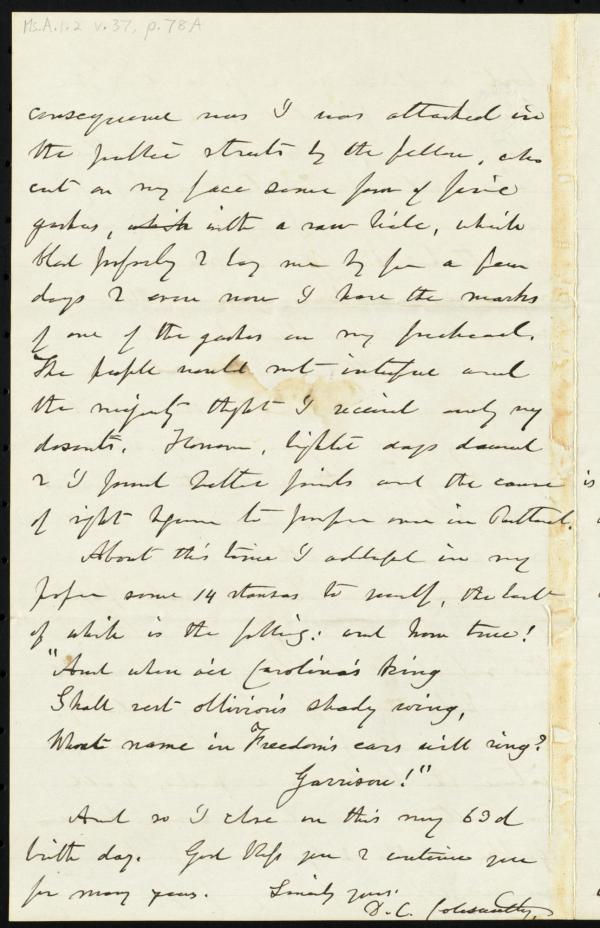 Ms.A.1.2 v.37, p.78A
consequence was I was attacked in
the public streets by the fellow, who
cut on my face some four or five
gashes, which with a raw hide, which
bled profusely & lay me by for a few
days & even now I have the marks
of one of the gashes on my forehead.
The people would not interfere and
the majority thght I received only my
deserts. However, brighter days dawned
& I found better friends and the cause
of right began to prosper even in Portland.
About this time I addressed in my
paper some 14 stanzas to yourself, the last
of which is the following: and how true!
"And when o'er Carolina's king
Shall rest oblivion's shady wing,
What name in Freedom's ears will ring?
Garrison!"
And so I close on this my 63d
birth day. God bless you & continue you
for many years. Sincerely yours:
D. C. Colesworthy,
is